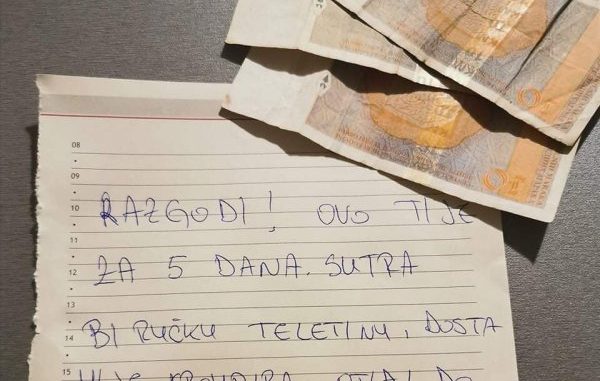 08
09
10
RAZGODI! OVO TI JE
11
12
ZA 5 DANA. SUTRA
13
14
BI RUČKU TELETINU, DOSTA
15
MI JE KROMPIRA